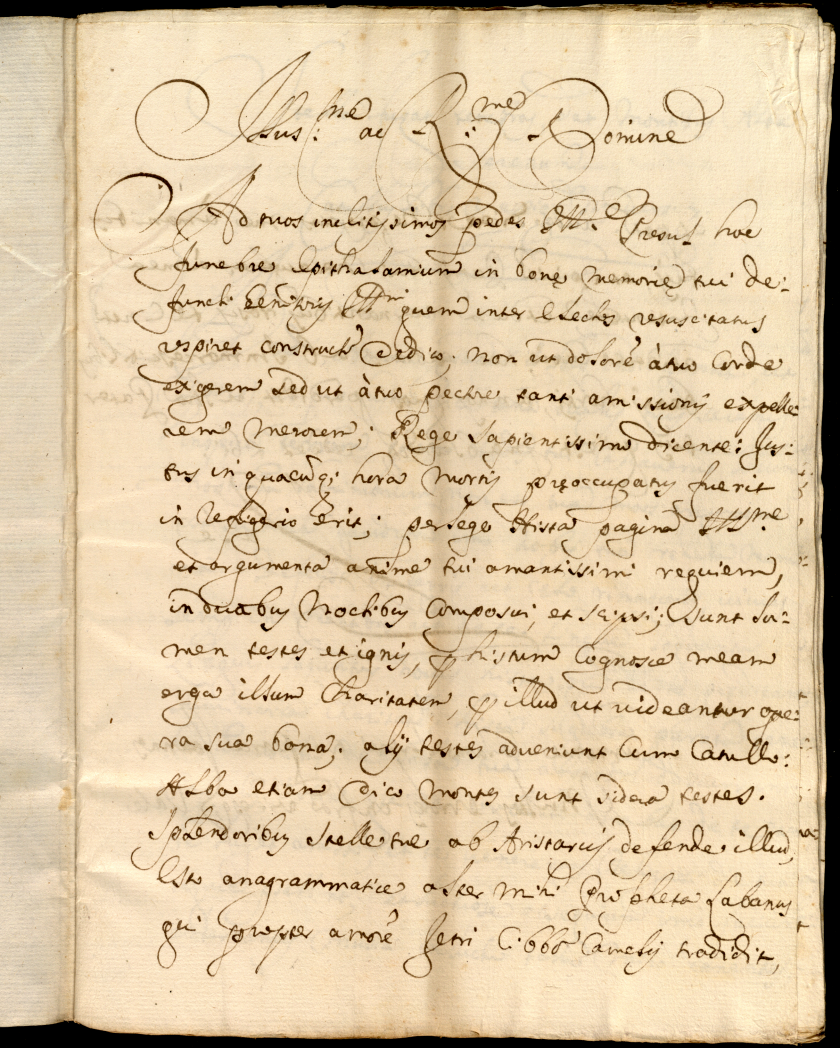 Illus:me ac R:me Domine
Ad tuos inclitissimos pedes Ill.e Presul hoc
funebre Epithalamium in bonę memorię tui de:
functi Genitoris Illm quem inter Electos resuscitatus
respiret constructũ Dedico; non ut dolorẽ à tuo Corde
exigerem sed ut à tuo pectore tanti amissionis expelle:
rem merorem; Rege sapientissimo dicente: Jus:
tus in quacũq; hora mortis pręoccupatus fuerit
in refrigerio erit; perlege Ista pagina Illme
et argumenta animę tui amantissimi requiem,
in duabus Noctibus Composui, et scripsi; Sunt Lu:
men testes et ignis, Cognosce meam
erga illum Charitatem, illud ut videantur ope:
ra sua bona; alij testes adveniunt Cum Catullo:
Alba etiam Dico montes sunt sidera testes.
Splendoribus Stellę tuę ab Aristarcis defende illud,
Esto anagrammatice alter mihi Propheta Labanus
qui propter amorẽ tradidit,